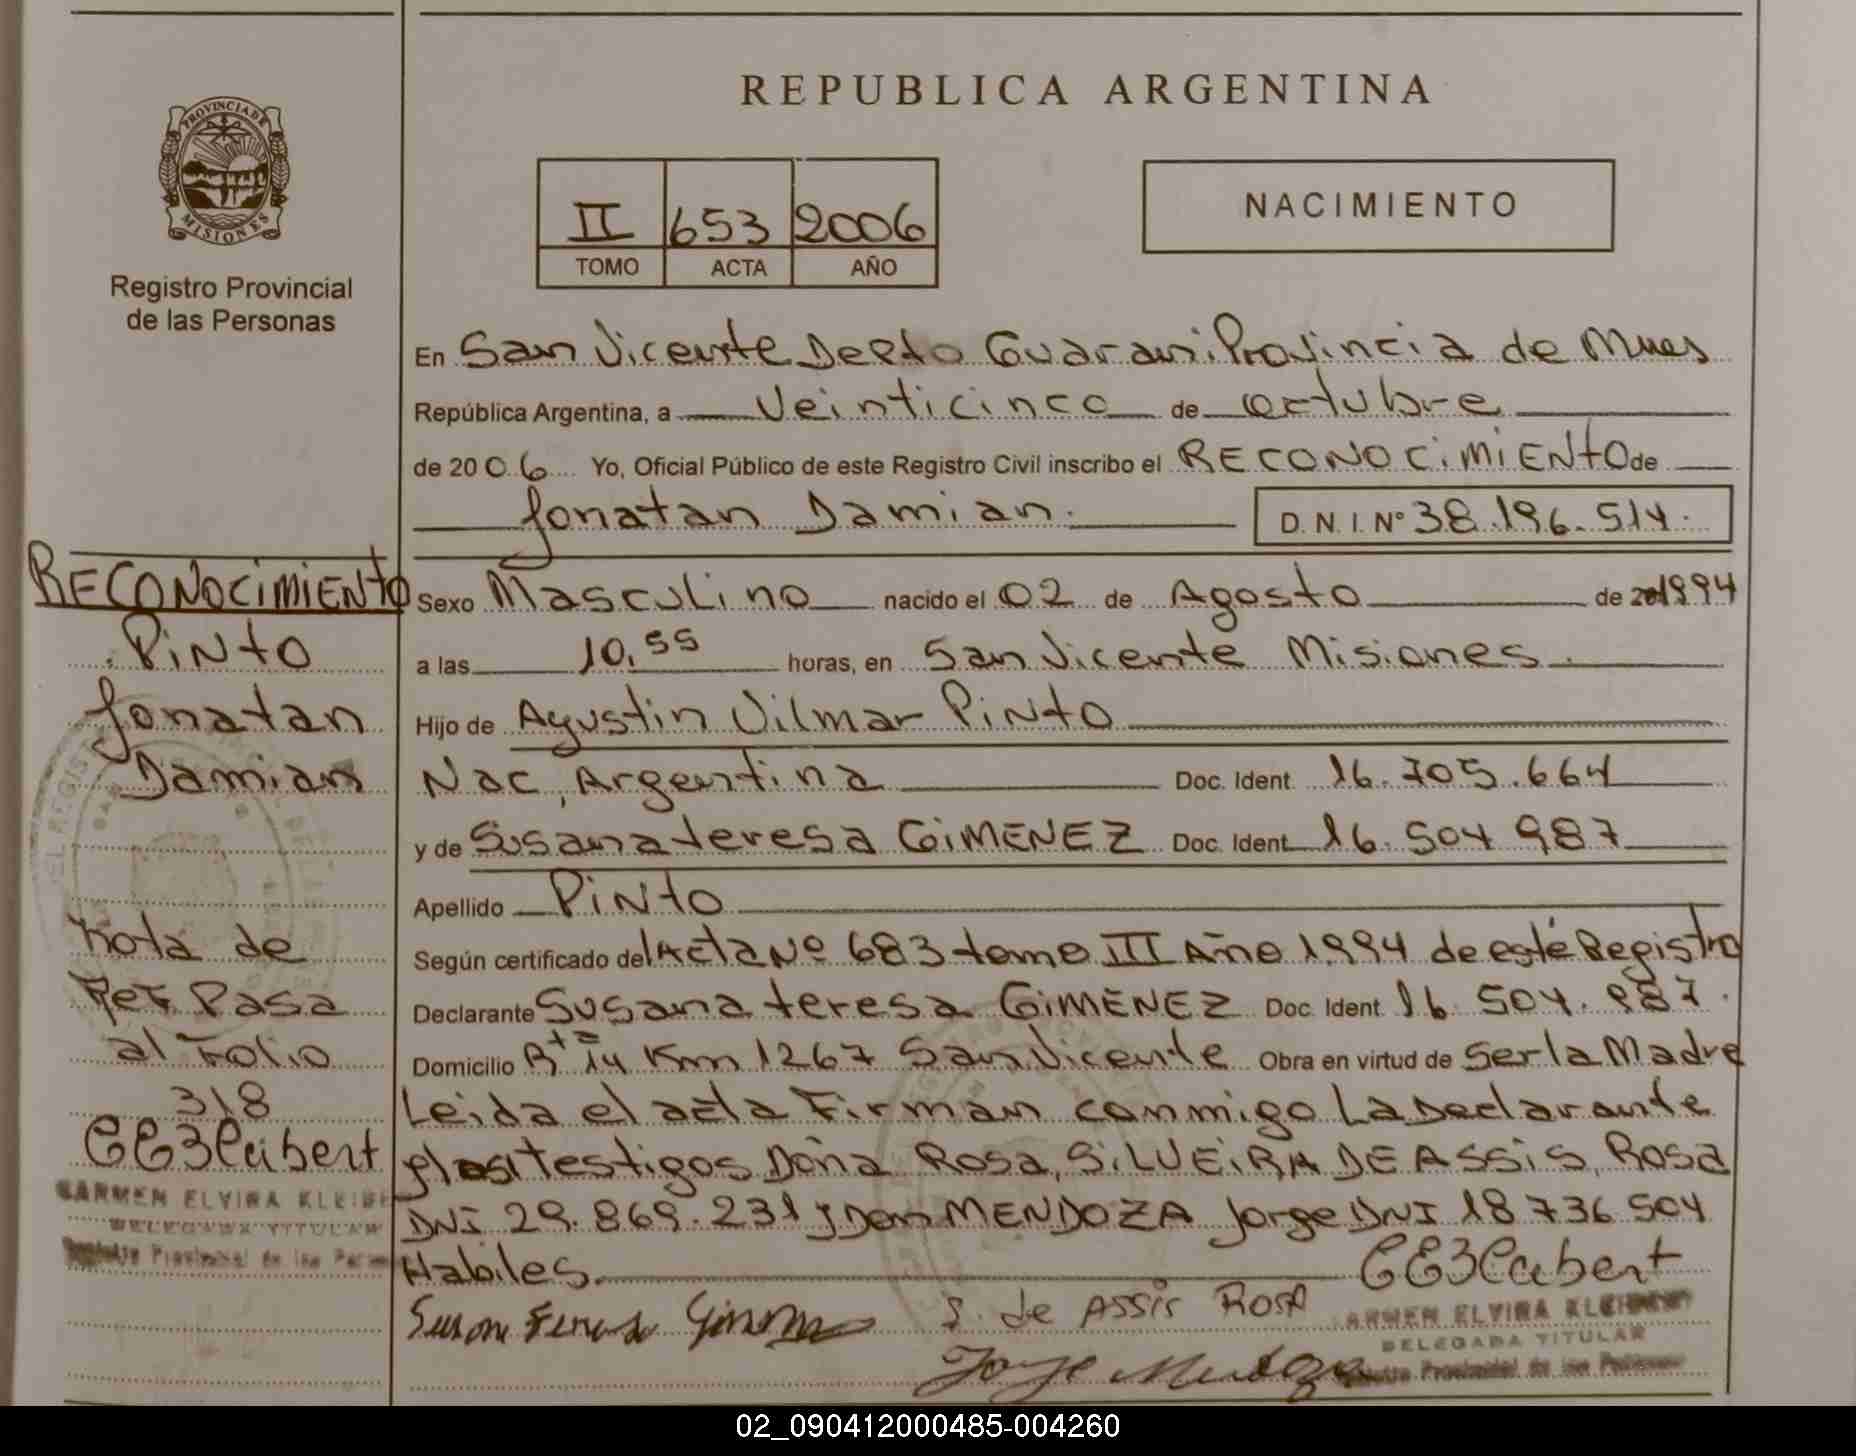 REPUBLICA ARGENTINA
PROVINCIA DE
MISIONES
Registro Provincial
de las Personas
II 653 2006
TOMO ACTA AÑO
NACIMIENTO
En San Vicente Depto Guarani Provincia de Mnes
República Argentina, a Veinticinco de octubre
de 2006 Yo, Oficial Público de este Registro Civil inscribo el RECONOCIMIENTO de
Jonatan Damian. D.N.I. Nº 38.196.514.
RECONOCIMIENTO
PINTO
Jonatan
Damian
Nota de
Ref. Pasa
al Folio
318
CARMEN ELVIRA
DELEGADA TITULAR
Registro Provincial de las
Sexo Masculino nacido el 02 de Agosto de 1994
a las 10,55 horas, en San Vicente Misiones.
Hijo de Agustin Vilmar PINTO
Nac, Argentina Doc. Ident. 16.705.664
y de Susana teresa GIMENEZ Doc. Ident. 16.504 987
Apellido PINTO
Según certificado del Acta Nº 683 tomo III Año 1994 de este Registro
Declarante Susana teresa GIMENEZ Doc. Ident. 16.504.987.
Domicilio Rta 14 Km 1267 San Vicente Obra en virtud de Ser la Madre
Leida el acta Firman conmigo La Declarante
y los testigos Doña Rosa, SILVEIRA DE ASSIS, Rosa
DNI 29.869.231 y Don MENDOZA Jorge DNI 18 736 504
Habiles.
S. de ASSIS ROSA
CARMEN ELVIRA
DELEGADA TITULAR
Registro Provincial de las Personas
02_090412000485-004260